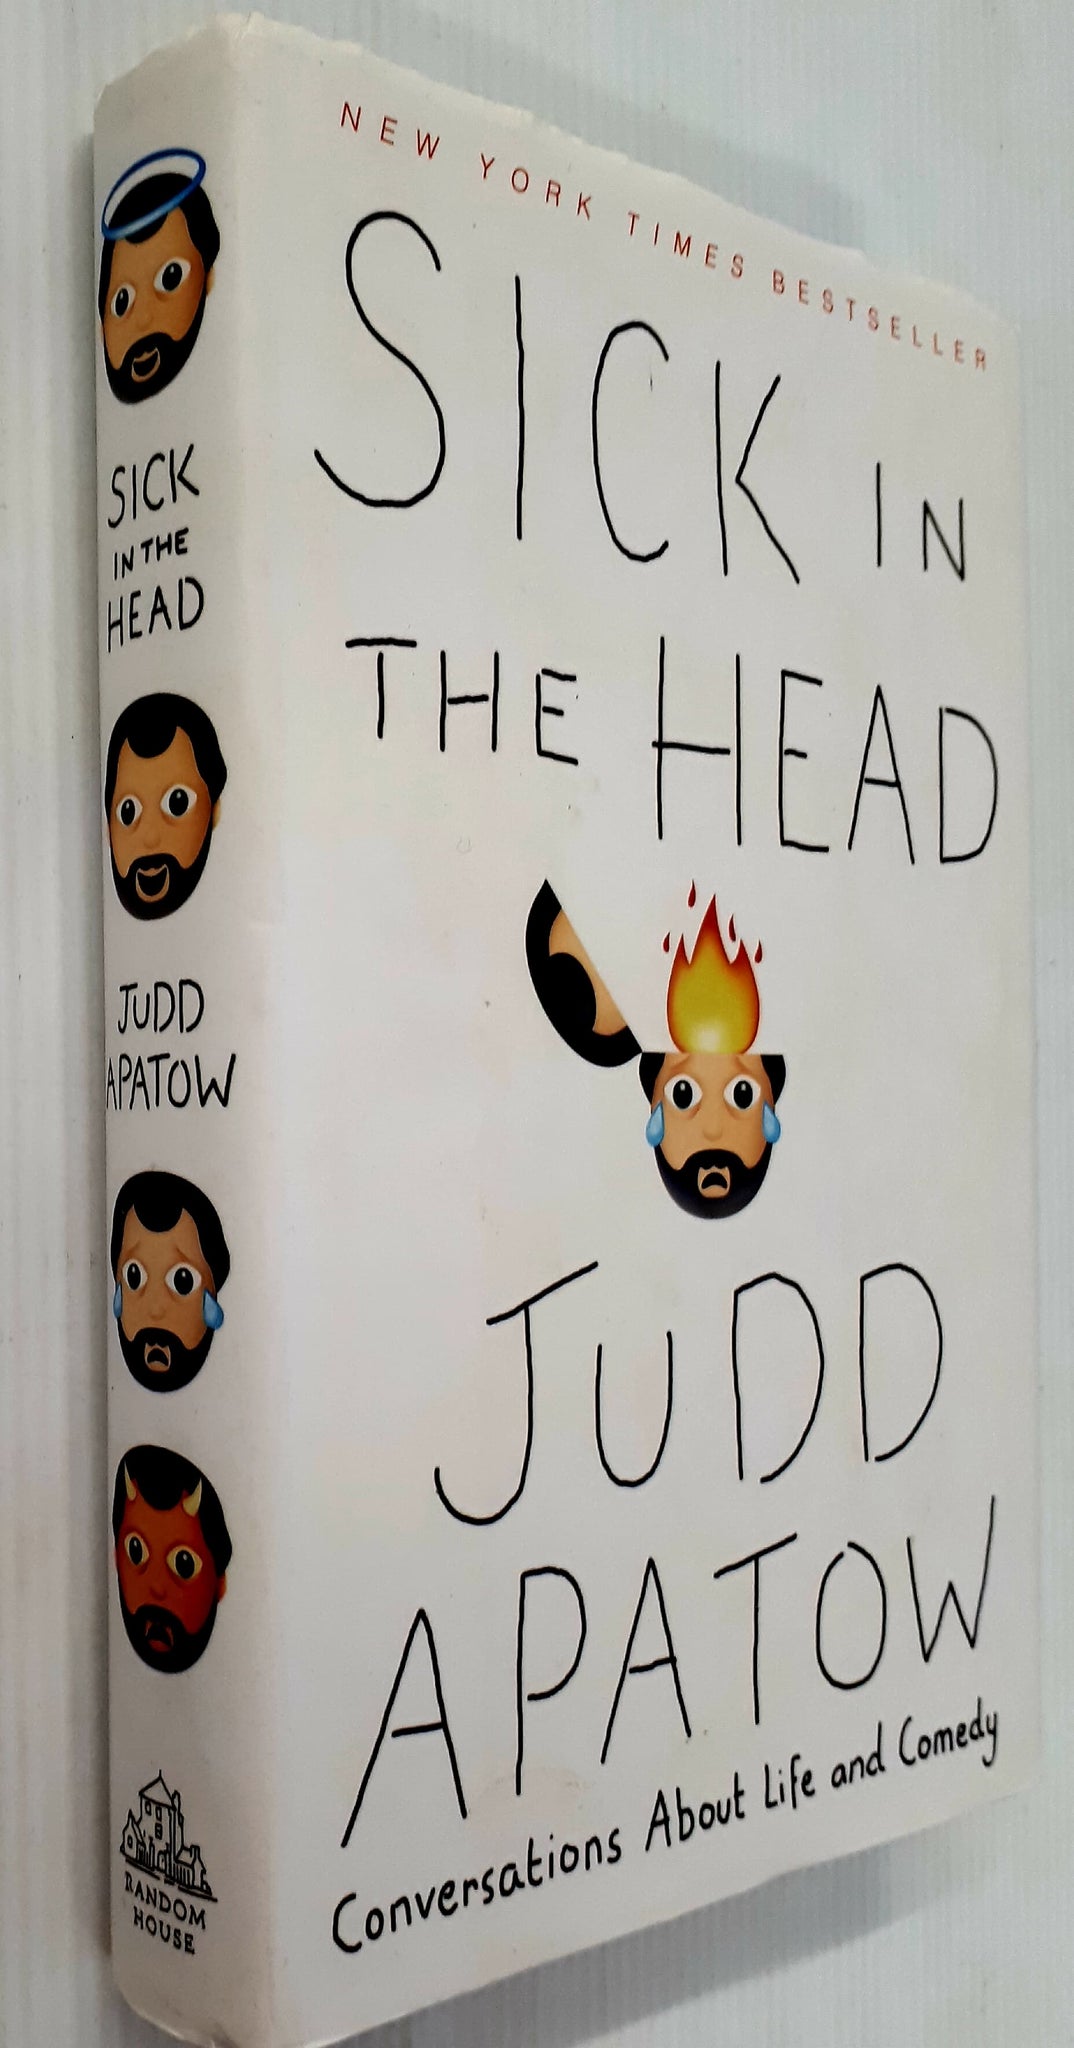 NEW YORK TIMES BESTSELLER
SICK IN
THE HEAD
JUDD
APATOW
Conversations About Life and Comedy
SICK
IN THE
HEAD
JUDD
APATOW
RANDOM
HOUSE